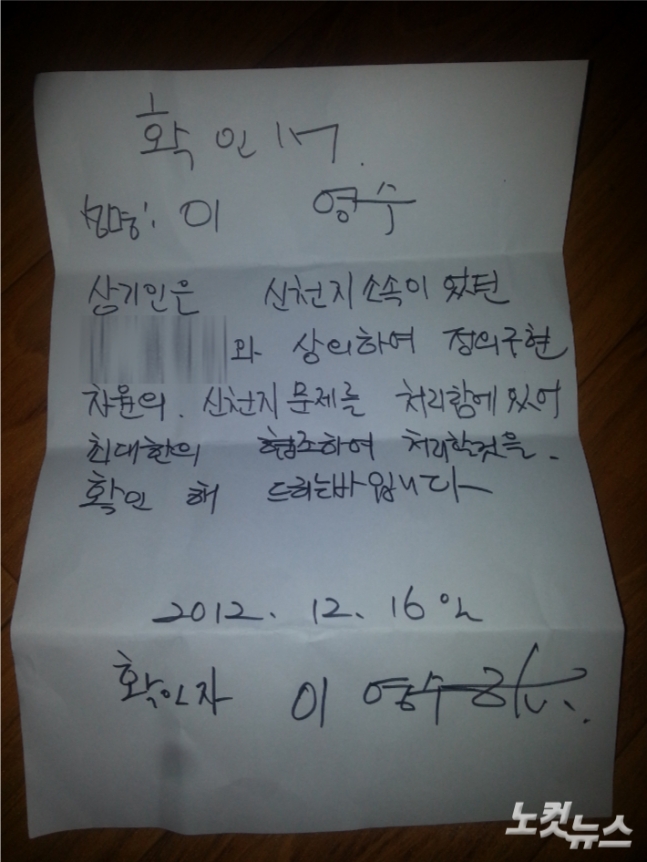 확인서.
성명: 이 영수
상기인은 신천지 소속이 었던
와 상의하여 정의구현
차원의. 신천지 문제를 처리함에 있어
최대한의 협조하여 처리할것을.
확인 해 드리는바 입니다
2012. 12. 16일
확인자 이 영수
노컷뉴스